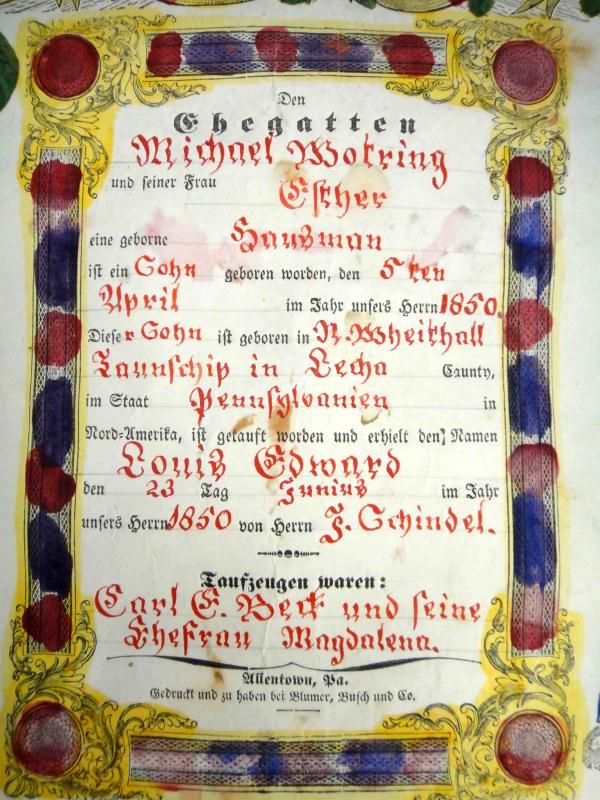 Den
Ehegatten
Michael Wotring
und seiner Frau Esther
eine geborne Hausman
ist ein Sohn geboren worden, den 5ten
April im Jahr unsers Herrn 1850.
Dieser Sohn ist geboren in N. Wheithall
Taunschip in Lecha Caunty,
im Staat Pennsylvanien in
Nord-Amerika, ist getauft worden und erhielt den Namen
Louis Edward
den 23 Tag Junius im Jahr
unsers Herrn 1850 von Herrn J. Schindel.
Taufzeugen waren:
Carl E. Beck und seine
Ehefrau Magdalena.
Allentown, Pa.
Gedruckt und zu haben bei Blumer, Busch und Co.